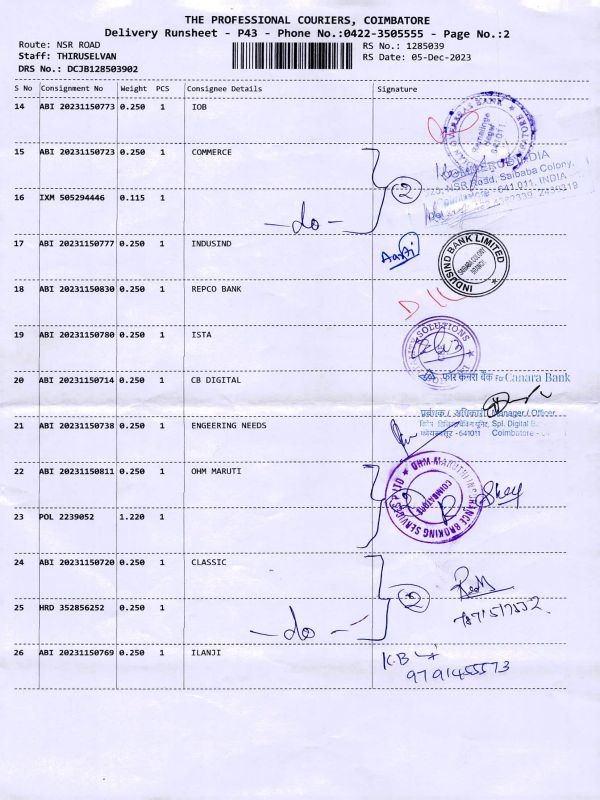 THE PROFESSIONAL COURIERS, COIMBATORE
Delivery Runsheet - P43 - Phone No.:0422-3505555 - Page No.:2
Route: NSR ROAD RS No.: 1285039
Staff: THIRUSELVAN RS Date: 05-Dec-2023
DRS No.: DCJB128503902
S No Consignment No Weight PCS Consignee Details Signature
14 ABI 20231150773 0.250 1 IOB
15 ABI 20231150723 0.250 1 COMMERCE
NSR Road, Saibaba Colony,
641 011, INDIA
2
16 IXM 505294446 0.115 1
-do-
17 ABI 20231150777 0.250 1 INDUSIND
INDUSIND BANK LIMITED
SAIBABA COLONY
BRANCH
18 ABI 20231150830 0.250 1 REPCO BANK
19 ABI 20231150780 0.250 1 ISTA
SOLUTIONS
20 ABI 20231150714 0.250 1 CB DIGITAL
केनरा बैंक For Canara Bank
प्रबंधक / अधिकारी Manager / Officer
Spl. Digital B
- 641011 Coimbatore -
21 ABI 20231150738 0.250 1 ENGEERING NEEDS
22 ABI 20231150811 0.250 1 OHM MARUTI
COIMBATORE
23 POL 2239052 1.220 1
24 ABI 20231150720 0.250 1 CLASSIC
2
25 HRD 352856252 0.250 1
-do-
26 ABI 20231150769 0.250 1 ILANJI
K.B
9791455573